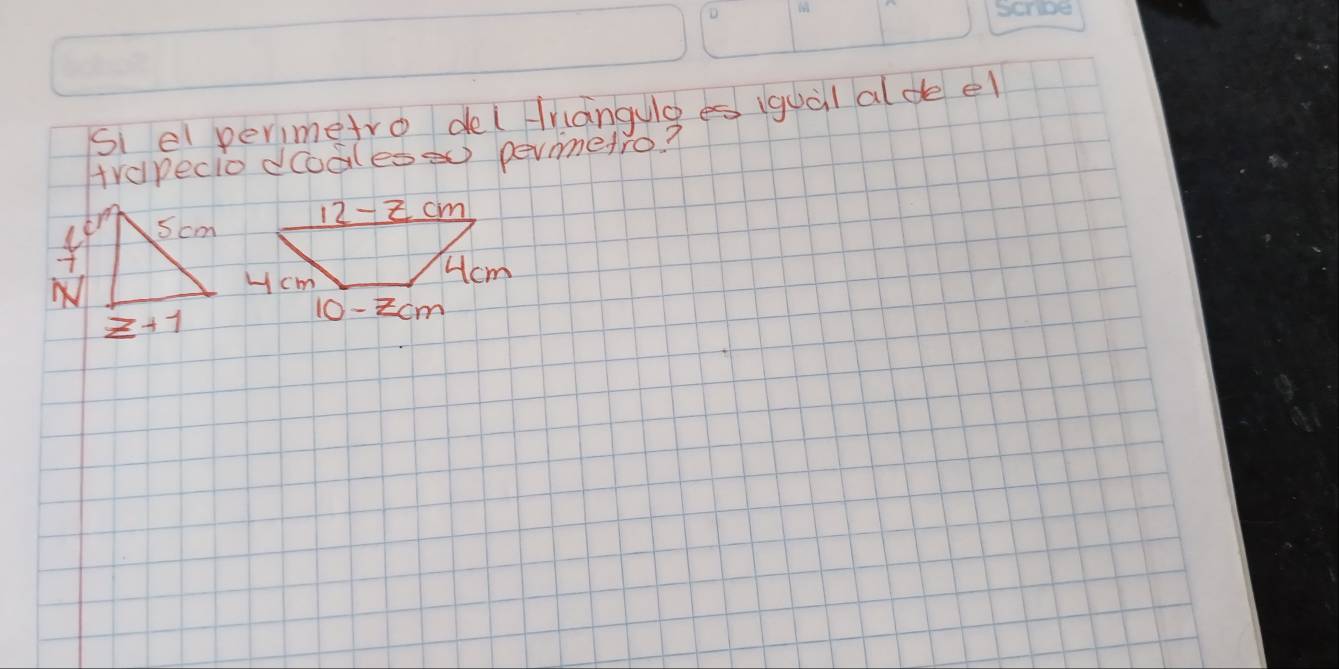 Scribe
D M A
Si el perimetro del triángulo es igual al de el
trapecio ¿coáles su perimetro?
5cm
12-z cm
4cm
4cm
z+1
10-zcm